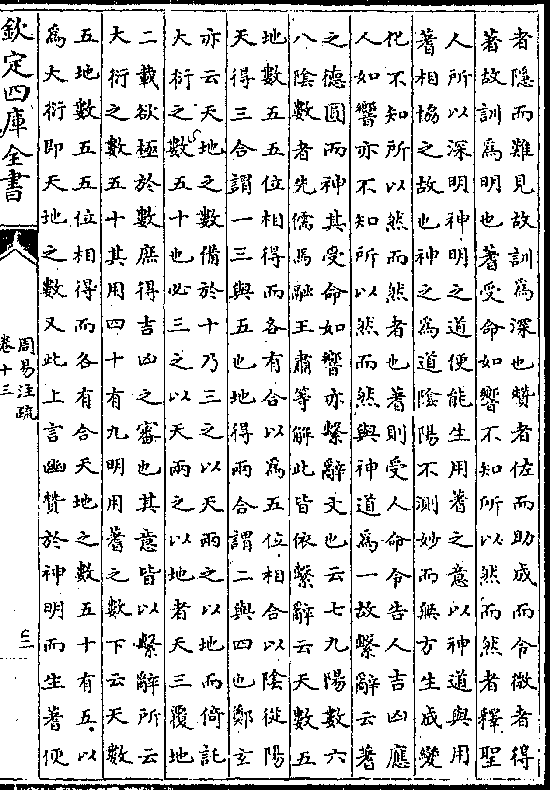 者隱而難見故訓為深也贊者佐而助成而令微者得
著故訓為明也蓍受命如響不知所以然而然者釋聖
人所以深明神明之道便能生用蓍之意以神道與用
蓍相協之故也神之為道陰陽不測妙而無方生成變
化不知所以然而然者也蓍則受人命令告人吉凶應
人如響亦不知所以然而然與神道為一故繫辭云蓍
之德圓而神其受命如響亦繫辭文也云七九陽數六
八陰數者先儒馬融王肅等解此皆依繫辭云天數五
地數五五位相得而各有合以為五位相合以陰從陽
天得三合謂一三與五也地得兩合謂二與四也鄭玄
亦云天地之數備於十乃三之以天兩之以地而倚託
大衍之數五十也必三之以天兩之以地者天三覆地
二載欲極於數庶得吉凶之審也其意皆以繫辭所云
大衍之數五十其用四十有九明用蓍之數下云天數
五地數五五位相得而各有合天地之數五十有五以
為大衍即天地之數又此上言幽贊於神明而生蓍便
欽定四庫全書
周易注疏
卷十三
三